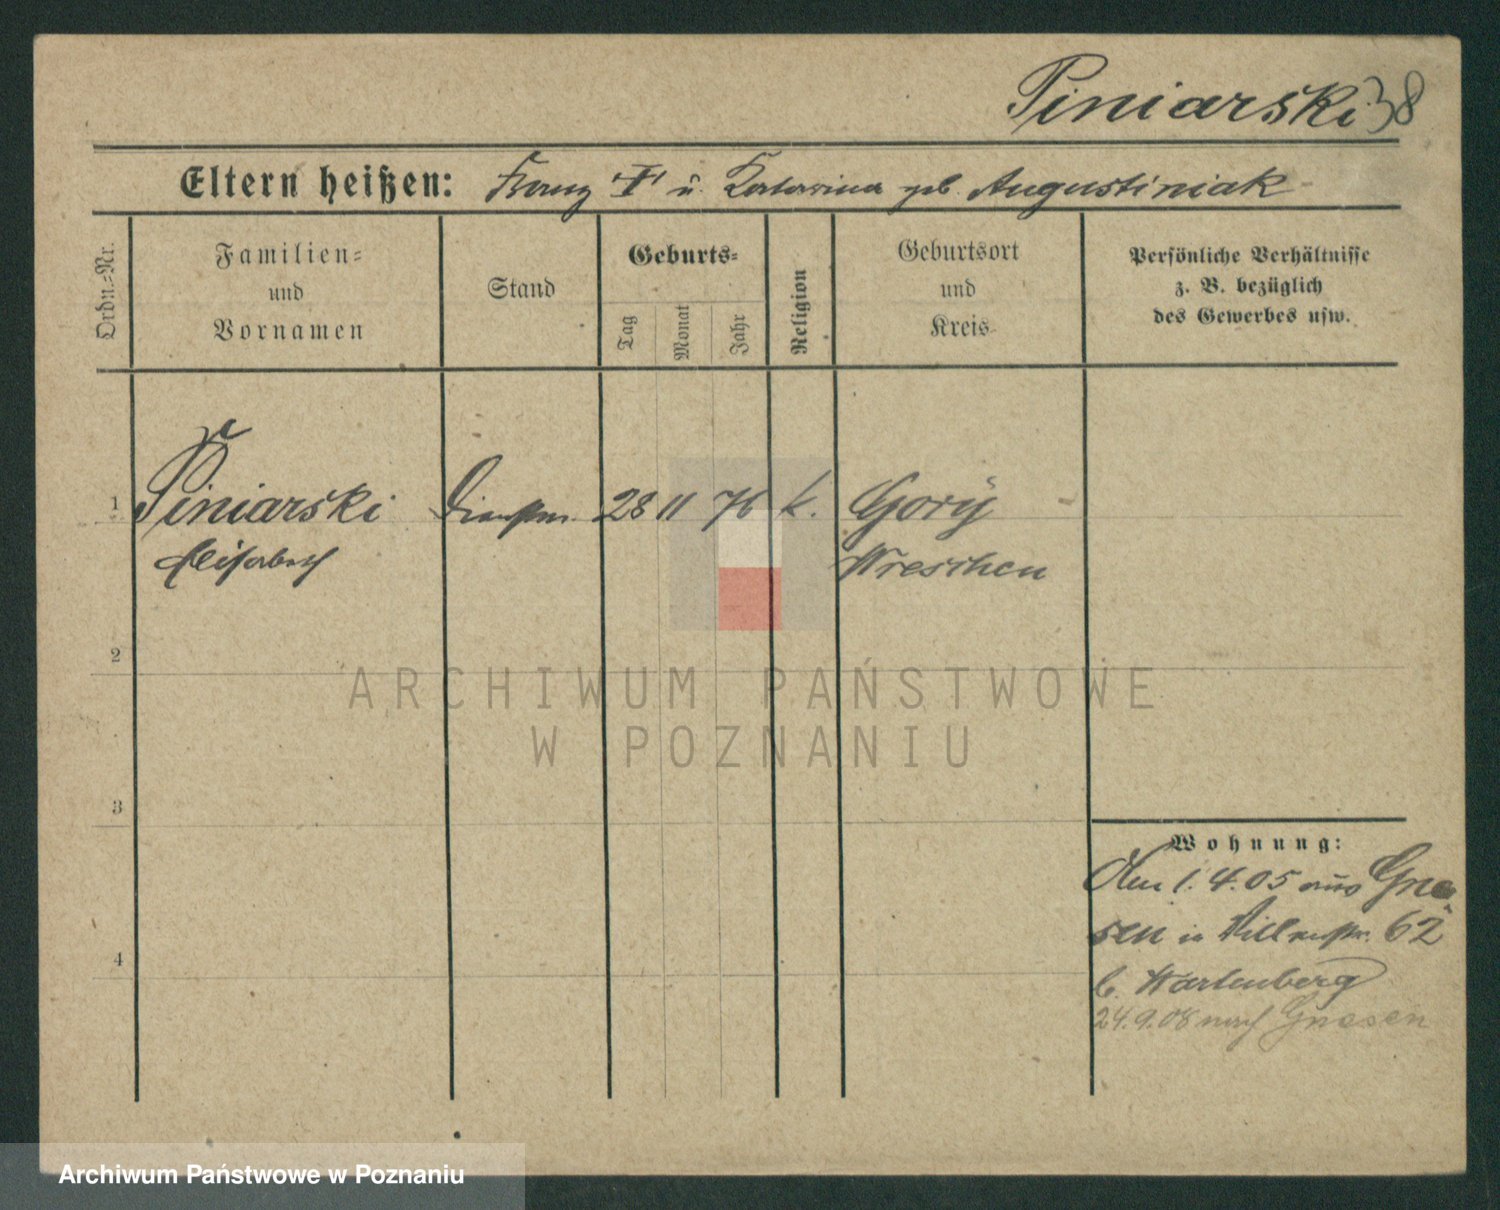 Piniarski 38
Eltern heißen: Franz † u. Katarina geb. Augustiniak
Ordn.-Nr.
Familien-
und
Vornamen
Stand
Geburts-
Tag
Monat
Jahr
Religion
Geburtsort
und
Kreis
Persönliche Verhältnisse
z. B. bezüglich
des Gewerbes usw.
1 Piniarski 28 11 76 k. Gorÿ
Elisabeth Wreschen
2
ARCHIWUM PAŃSTWOWE
W POZNANIU
3
Wohnung:
Am 1. 4. 05 aus Gne-
sen in 62
b. Wartenberg
4
24.9.08 nach Gnesen
Archiwum Państwowe w Poznaniu